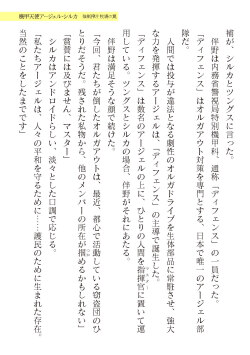 機甲天使アージェル・シルカ
補が、シルカとツングスに言った。
伴野は内務省警視局特別機甲科、通称「ディフェンス」の一員だった。
「ディフェンス」はオルガアウト対策を専門とする、日本で唯一のアージェル部
隊だ。
人間では投与が違法となる劇性のオルガドライブを生体部品に常駐させ、強大
な力を発揮するアージェルは、「ディフェンス」の主導で誕生した。
「ディフェンス」は数名のアージェルの上に、ひとりの人間を指揮官に置いて運
用している。ツングスとシルカの場合、伴野がそれにあたる。
伴野は満足そうな顔で続けた。
「今回、君たちが倒したオルガアウトは、最近、都心で活動している窃盗団のひ
とりだそうだ。残された私物から、他のメンバーの所在が掴めるかもしれない」
「賞賛には及びません、マスター」
シルカはアンドロイドらしい、淡々とした口調で応じる。
「私たちアージェルは、人々の平和を守るために……護民のために生まれた存在。
当然のことをしたまでです」